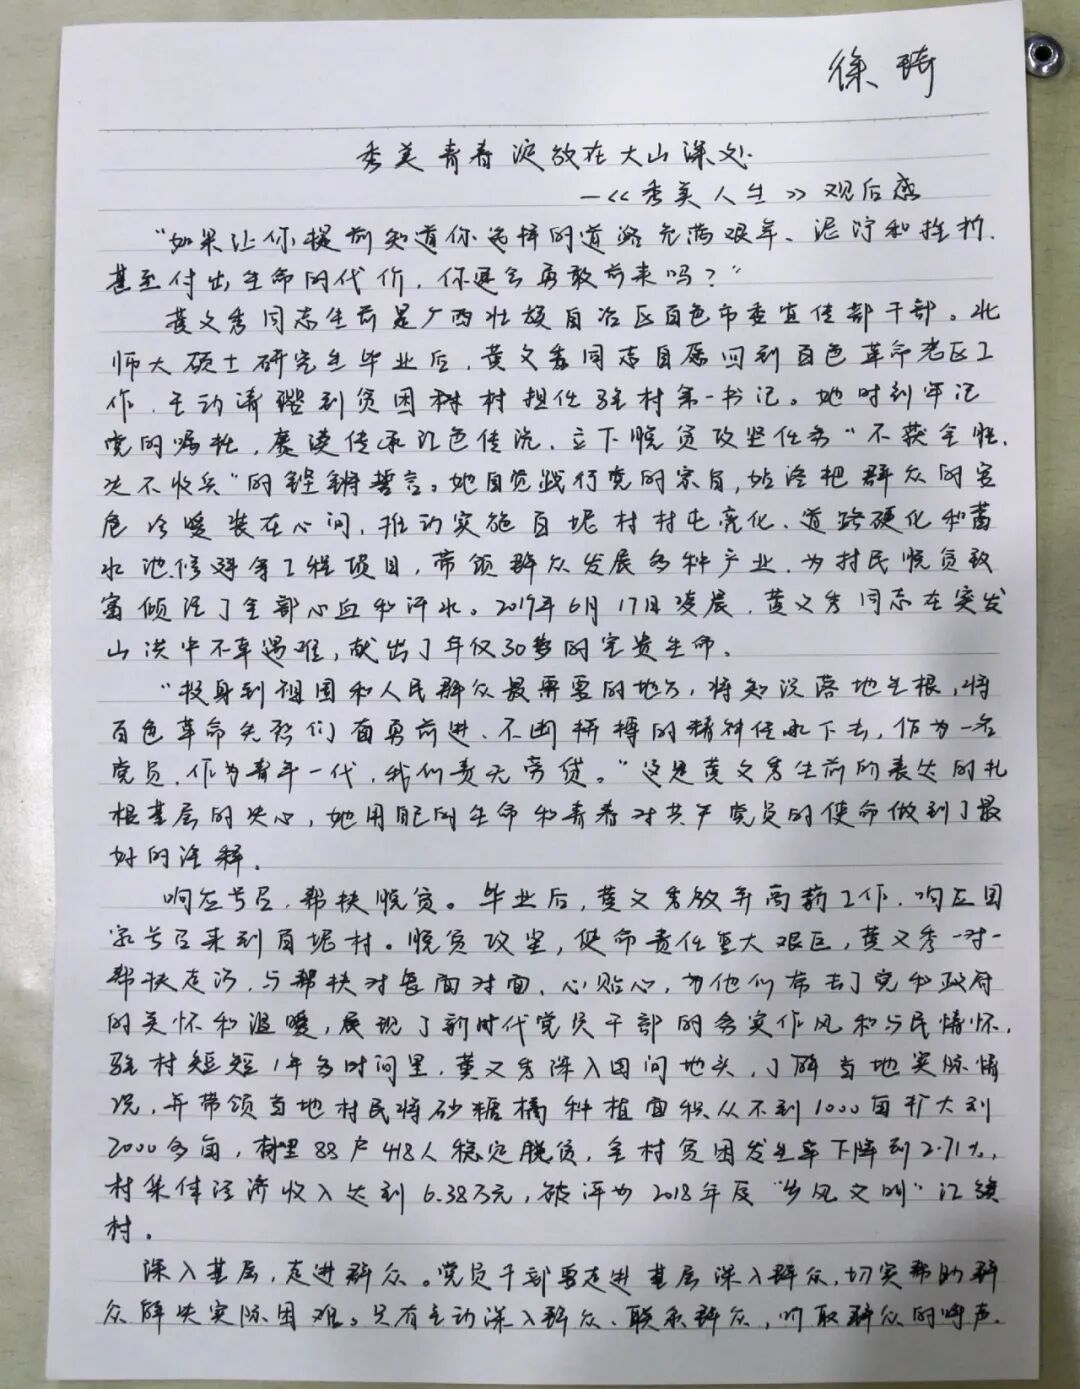 徐琦
秀美青春绽放在大山深处
—《秀美人生》观后感
“如果让你提前知道你选择的道路充满艰辛、泥泞和挫折,
甚至付出生命的代价,你还会勇敢前来吗?”
黄文秀同志生前是广西壮族自治区百色市委宣传部干部。北
师大硕士研究生毕业后,黄文秀同志自愿回到百色革命老区工
作,主动请缨到贫困村担任驻村第一书记。她时刻牢记
党的嘱托,赓续传承红色传统,立下脱贫攻坚任务“不获全胜,
决不收兵”的铿锵誓言。她自觉践行党的宗旨,始终把群众的安
危冷暖装在心间,推动实施百坭村村屯亮化、道路硬化和蓄
水池修建等工程项目,带领群众发展多种产业,为村民脱贫致
富倾注了全部心血和汗水。2019年6月17日凌晨,黄文秀同志在突发
山洪中不幸遇难,献出了年仅30岁的宝贵生命。
“投身到祖国和人民群众最需要的地方,将知识落地生根,将
百色革命先烈们奋勇前进、不断拼搏的精神传承下去,作为一名
党员,作为青年一代,我们责无旁贷。”这是黄文秀生前的表达的扎
根基层的决心,她用自己的生命和青春对共产党员的使命做到了最
好的注释。
响应号召,帮扶脱贫。毕业后,黄文秀放弃高薪工作,响应国
家号召来到百坭村。脱贫攻坚,使命责任重大艰巨,黄文秀一对一
帮扶走访,与帮扶对象面对面、心贴心,为他们带去了党和政府
的关怀和温暖,展现了新时代党员干部的务实作风和为民情怀。
驻村短短1年多时间里,黄文秀深入田间地头,了解当地实际情
况,并带领当地村民将砂糖橘种植面积从不到1000亩扩大到
2000多亩,村里88户418人稳定脱贫,全村贫困发生率下降到2.71%,
村集体经济收入达到6.38万元,被评为2018年度“乡风文明”红旗
村。
深入基层,走进群众。党员干部要走进基层深入群众,切实帮助群
众解决实际困难。只有主动深入群众、联系群众,听取群众的呼声,